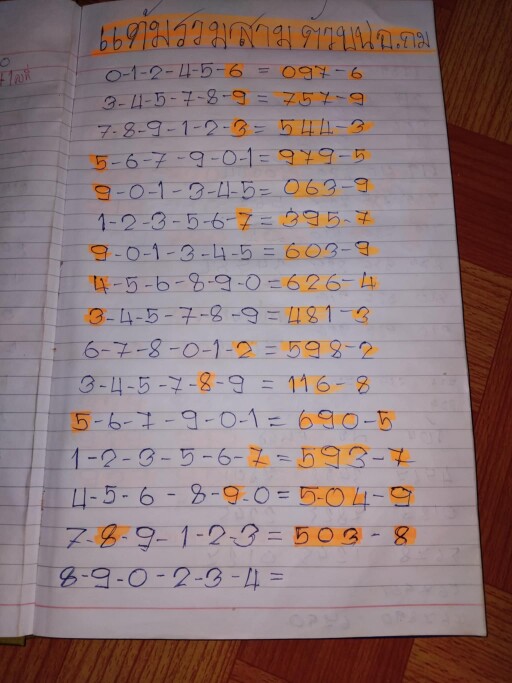 แต้มรวมสามตัวบน จ.ถม
0-1-2-4-5-6 = 097-6
3-4-5-7-8-9 = 757-9
7-8-9-1-2-3 = 544-3
5-6-7-9-0-1 = 979-5
9-0-1-3-4-5 = 063-9
1-2-3-5-6-7 = 395-7
9-0-1-3-4-5 = 603-9
4-5-6-8-9-0 = 626-4
3-4-5-7-8-9 = 481-3
6-7-8-0-1-2 = 598-2
3-4-5-7-8-9 = 116-8
5-6-7-9-0-1 = 690-5
1-2-3-5-6-7 = 593-7
4-5-6-8-9-0 = 504-9
7-8-9-1-2-3 = 503-8
8-9-0-2-3-4 =